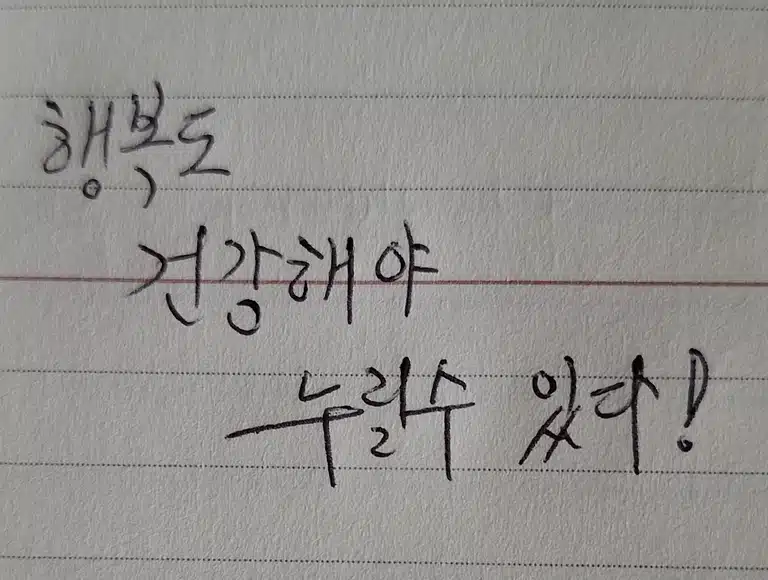 행복도
건강해야
누릴수 있다!